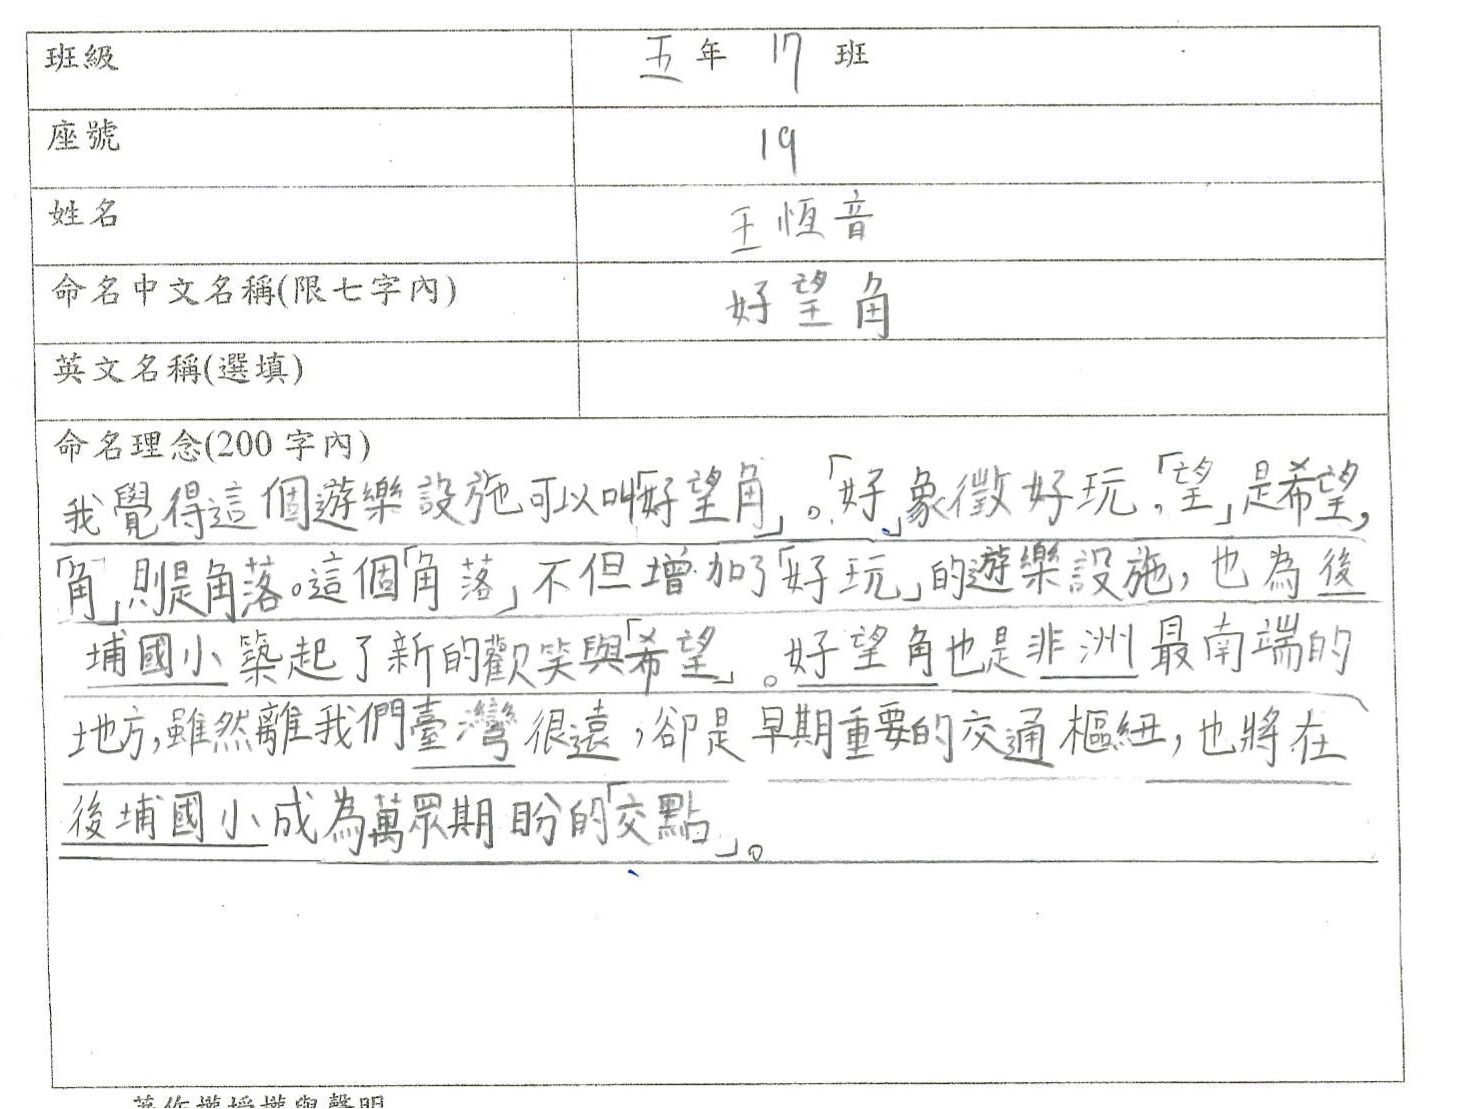 班級 五年 17 班
座號 19
姓名 王恆音
命名中文名稱(限七字內) 好望角
英文名稱(選填)
命名理念(200 字內)
我覺得這個遊樂設施可以叫「好望角」。「好」象徵好玩,「望」是希望,
「角」則是角落。這個「角落」不但增加了「好玩」的遊樂設施,也為後
埔國小築起了新的歡笑與「希望」。好望角也是非洲最南端的
地方,雖然離我們臺灣很遠,卻是早期重要的交通樞紐,也將在
後埔國小成為萬眾期盼的「交點」。
著作權授權與聲明